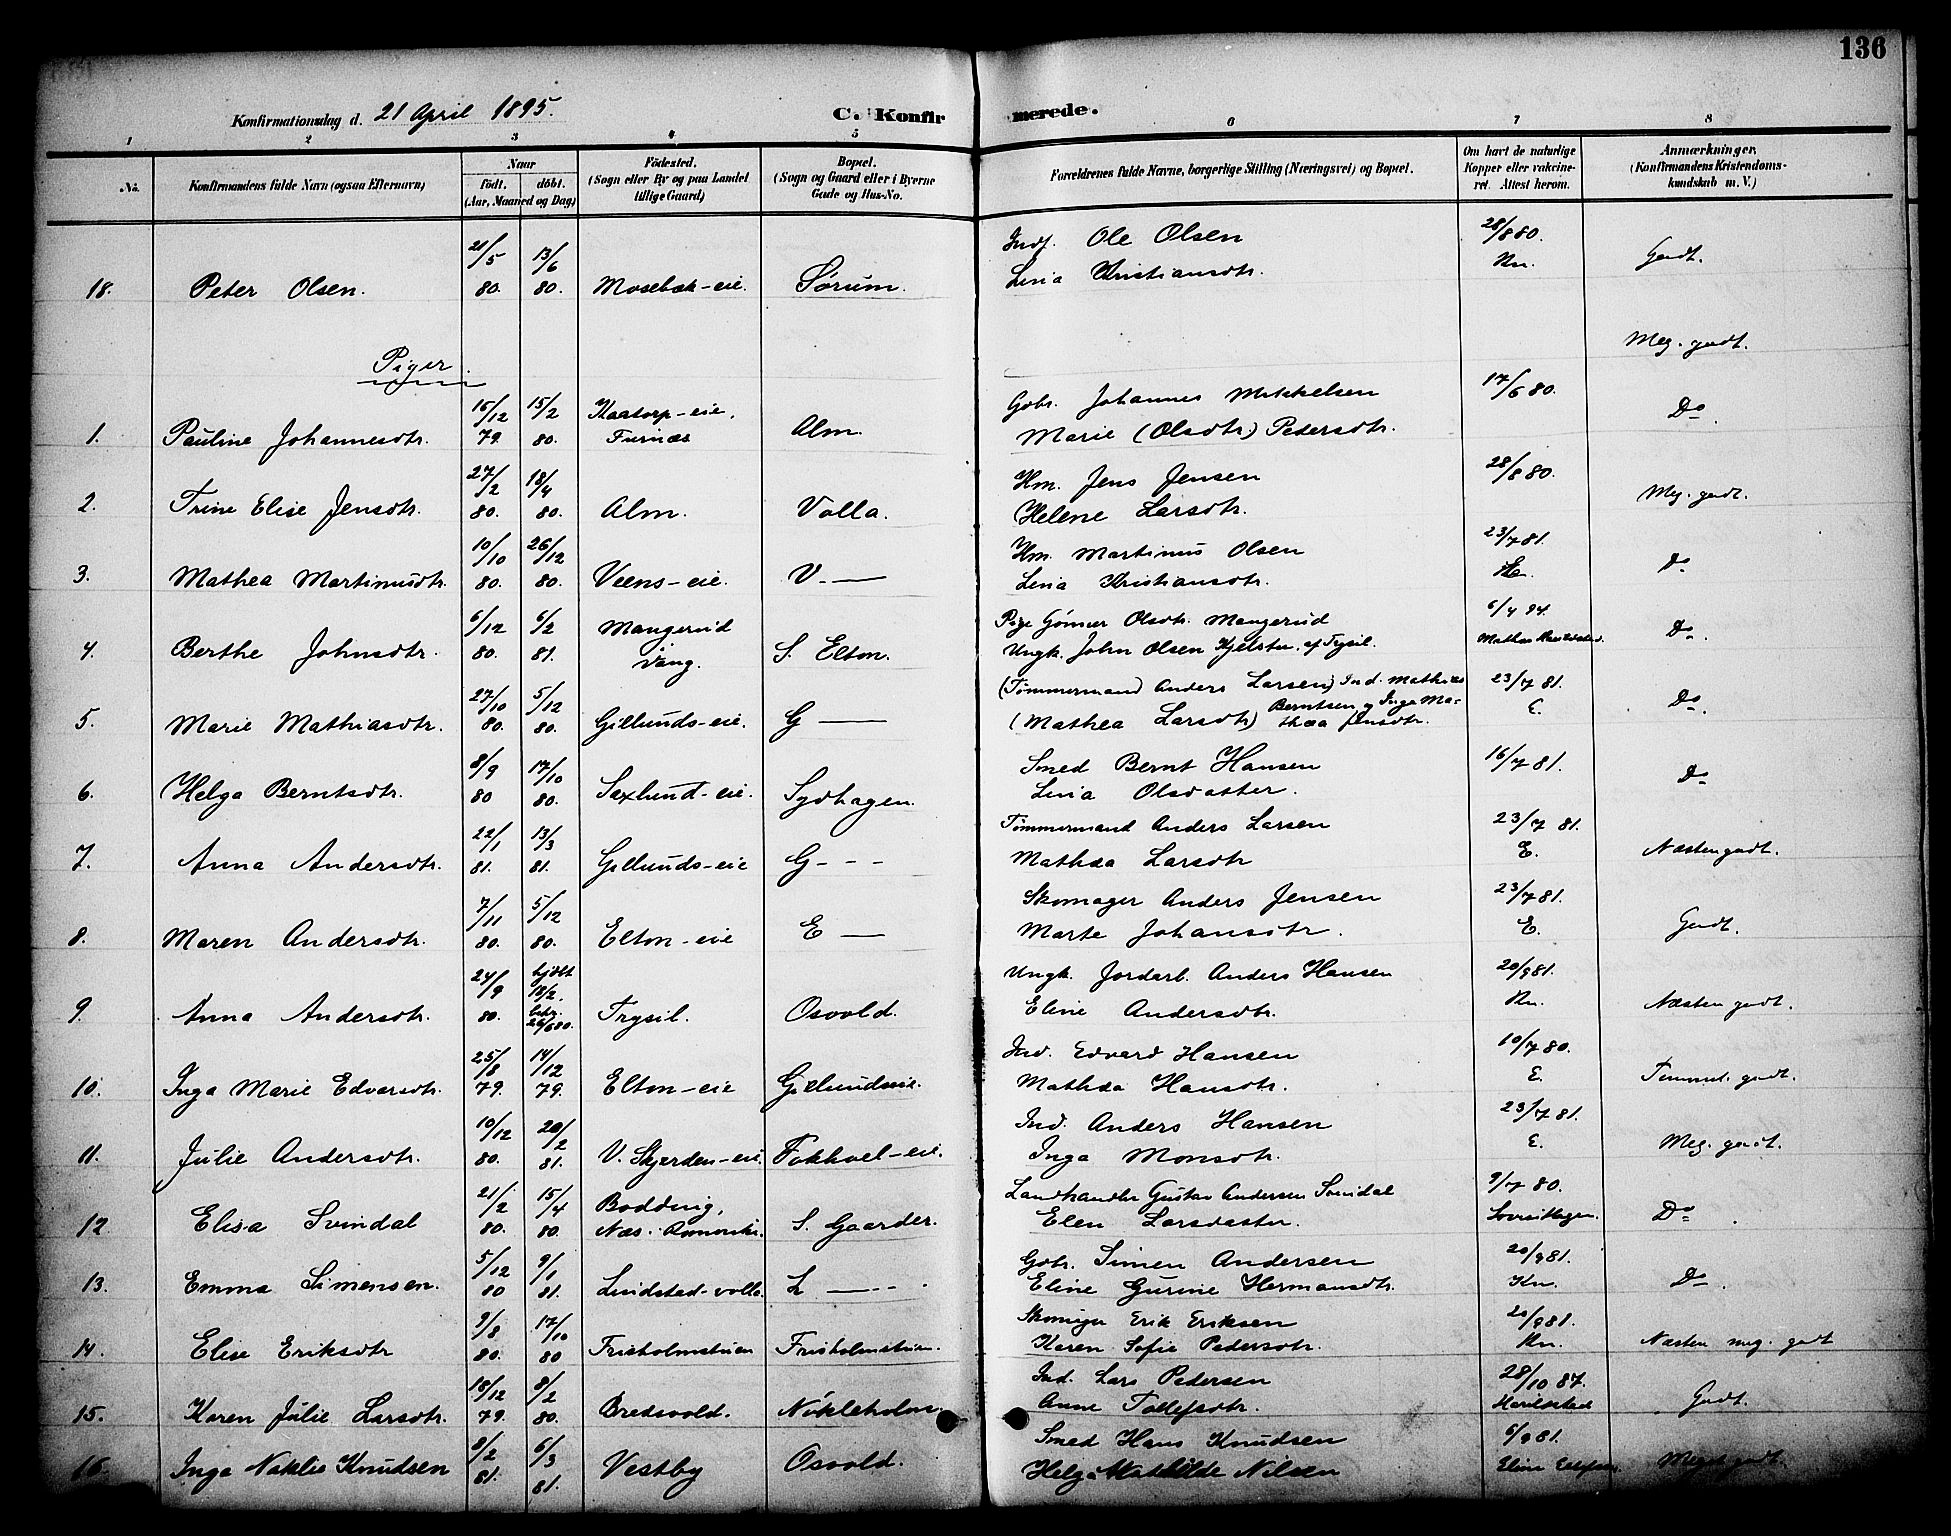 136
Konfirmationsdag d. 21 April 1895.
C. Konfirmerede.
1 2 3 4 5 6 7 8
No. Konfirmandens fulde Navn (ogsaa Efternavn) Naar födt. döbt. (Aar, Maaned og Dag) Födested. (Sogn eller By og paa Landet tillige Gaard) Bopæl. (Sogn og Gaard eller i Byerne Gade og Hus-No. Forældrenes fulde Navne, borgerlige Stilling (Næringsvei) og Bopæl. Om havt de naturlige Kopper eller vakcineret. Attest herom. Anmærkninger. (Konfirmandens Kristendomskundskab m. V.)
21/5 13/6 Ind. Ole Olsen 28/8 80. Godt.
18. Peter Olsen. 80. 80. Mosebæk-eie. Sörum. Lina Kristiansdtr. Kn.
Meg. godt.
Piger.
15/12 15/2 Kaatorp-eie, Gbr. Johannes Mikkelsen 17/6 80. Do
1. Pauline Johannesdtr. 79. 80. Furnæs Alm. Marie (Olsdtr.) Pedersdtr.
27/2 18/4 Hm. Jens Jensen 28/8 80. Meg. godt.
2. Trine Elise Jensdtr. 80. 80. Alm. Volla. Helene Larsdtr.
10/10 26/12 Hm. Martinus Olsen 23/7 81. Do
3. Mathea Martinusdtr. 80. 80. Veens-eie. V. — Lina Kristiansdtr.
6/12 6/2 Mangerud Pige Gönner Olsdtr. Mangerud 6/4 94. Do.
4. Berthe Johnsdtr. 80. 81. Vang. S. Elton. Ungk. John Olsen Kjelster, af Trysil. Mathea
27/10 5/12 (Tömmermand) Anders Larsen) Ind. Mathias 23/7 81. Do.
Berntsen og Inga Ma-
5. Marie Mathiasdtr. 80. 80. Gillunds-eie. G — (Mathea Larsdtr) thea Jensdtr. E.
8/9 17/10 Smed Bernt Hansen 16/7 81. Do
6. Helga Berntsdtr. 80 80. Saxlund-eie. Sydhagen. Lina Olsdatter.
22/1 13/3 Tömmermand Anders Larsen 23/7 81. Næsten godt.
7. Anna Andersdtr. 81. 81. Gillunds-eie G - - - Mathea Larsdtr E.
7/11 5/12 Skomager Anders Jensen 23/7 81. Godt.
8. Maren Andersdtr. 80. 80. Elton-eie E — Marte Johansdtr. E.
24/9 hjdbt 18/2. Ungk. Jordarb. Anders Hansen 20/9 81.
9. Anna Andersdtr. 80. Trysil. Osvold. Eline Andersdtr. Kn. Næsten godt.
25/8 14/12 Ind. Edvard Hansen 10/7 80.
10. Inga Marie Edvarsdtr. 79. 79. Elton-eie Gillundseie. Mathea Hansdtr. E. Temmel. godt.
10/12 20/2 Ind. Anders Hansen 23/7 81.
11. Julie Andersdtr. 80. 81. V. Skjerden-eie. Fokhoel-eie. Inga Monsdtr. E. Meg. godt.
21/2 15/4 Bodding, Landhandler Gustav Andersen Svindal 9/7 80.
12. Elisa Svindal 80. 80. Næs. S. Gaarder. Elen Larsdatter. Do.
5/12 9/1 Gbr. Simen Andersen 20/9 81.
13. Emma Simensen. 80 81. Lindstad-volla. L — Eline Gurine Hermansdtr. Kn. Do
9/8 17/10 Skomager Erik Eriksen 20/9 81.
14. Elise Eriksdtr 80. 80 Frisholmstuen Frisholmstuen. Karen Sofie Pedersdtr. Kn. Næsten meg. godt
18/12 8/2 Ind. Lars Pedersen 28/10 87.
15. Karen Julie Larsdtr. 79. 80. Bredvold. Nökleholm. Anne Tollefsdtr. Godt.
8/2 6/3 Smed Hans Knudsen 6/9 81.
16. Inga Natalie Knudsen 81. 81. Vestby Osvold. Helga Mathilde Nilsen Eline Meget godt.